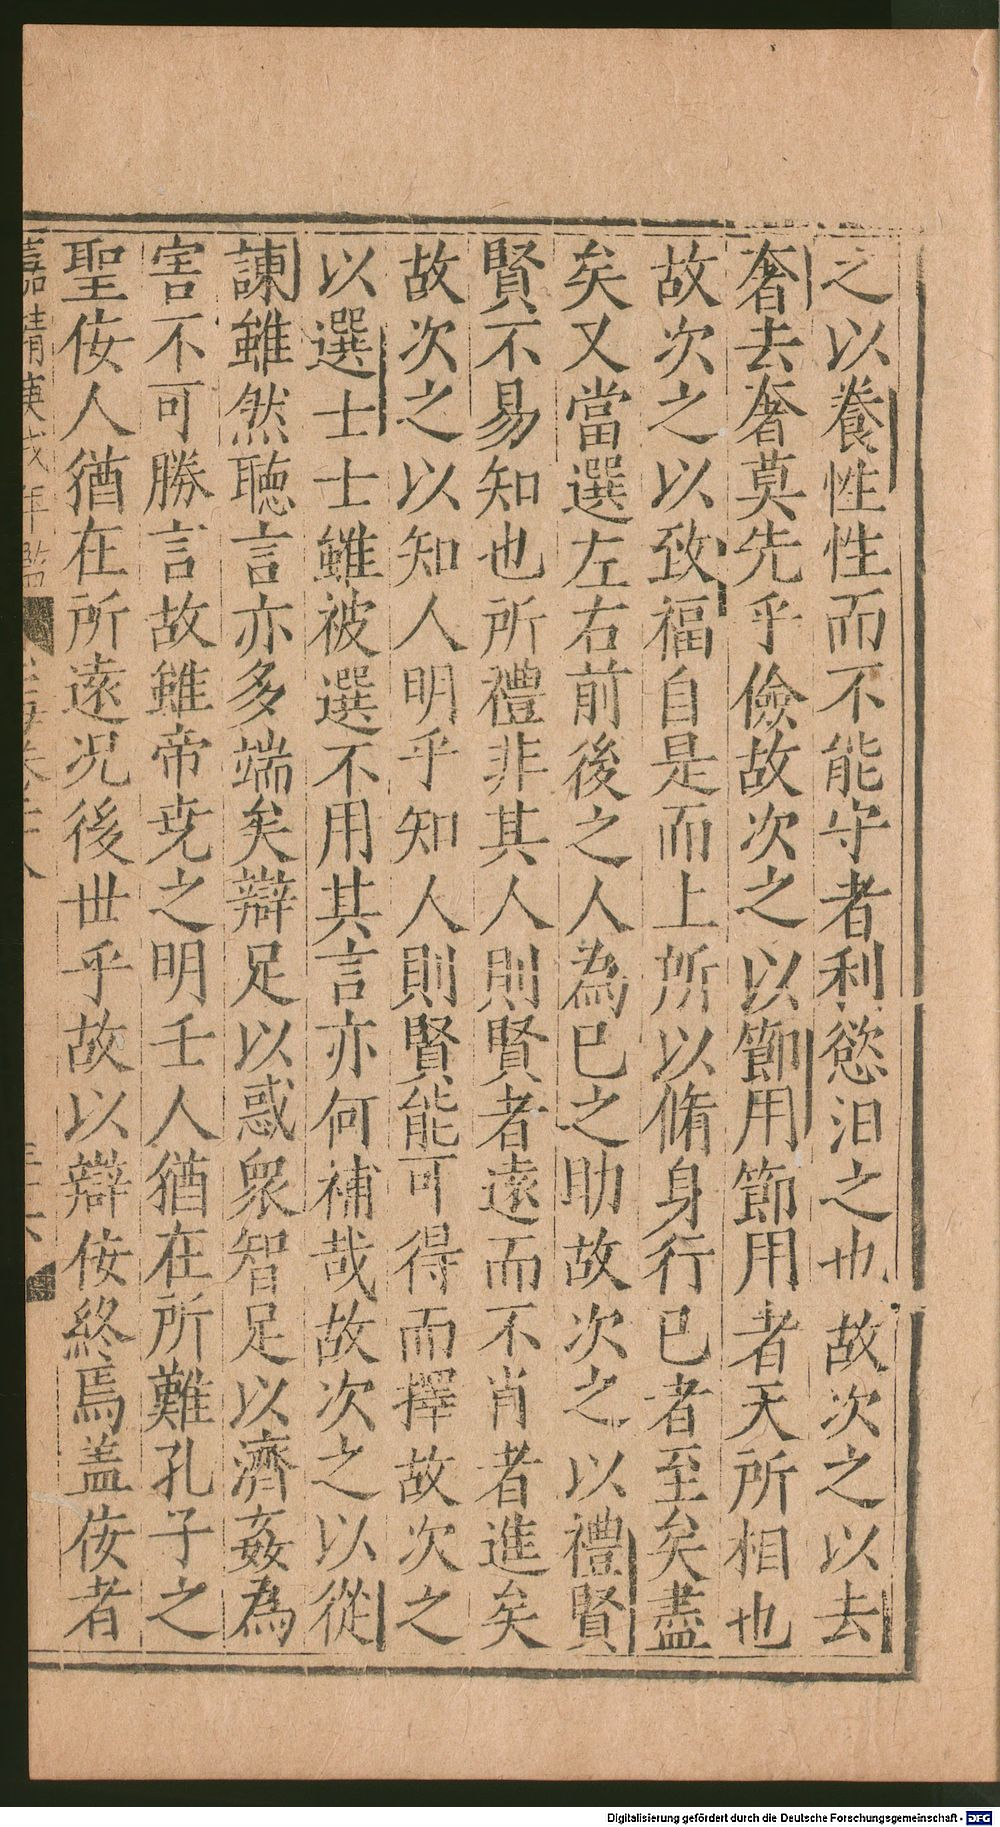 之以養性性而不能守者利慾汩之也故次之以去
奢去奢莫先乎儉故次之以節用節用者天所相也
故次之以致福自是而上所以脩身行已者至矣盡
矣又當選左右前後之人為已之助故次之以禮賢
賢不易知也所禮非其人則賢者遠而不肖者進矣
故次之以知人明乎知人則賢能可得而擇故次之
以選士士雖被選不用其言亦何補哉故次之以從
諫雖然聽言亦多端矣辯足以惑衆智足以濟姦為
害不可勝言故雖帝尭之明壬人猶在所難孔子之
聖侫人猶在所遠况後世乎故以辯侫終焉盖侫者
嘉靖庚戌年監
Digitalisierung gefördert durch die Deutsche Forschungsgemeinschaft - DFG